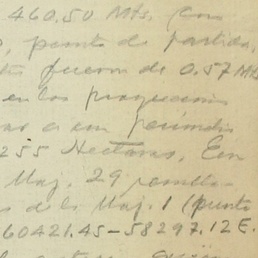 460.50 Mts. con
punto de partida,
fueron de 0.57 Mts
en las proyecciones
a un perímetro
255 Hectáreas, Em
Moj. 29 resulta-
de la Moj. 1 (punto
60421.45-58297.12 E.